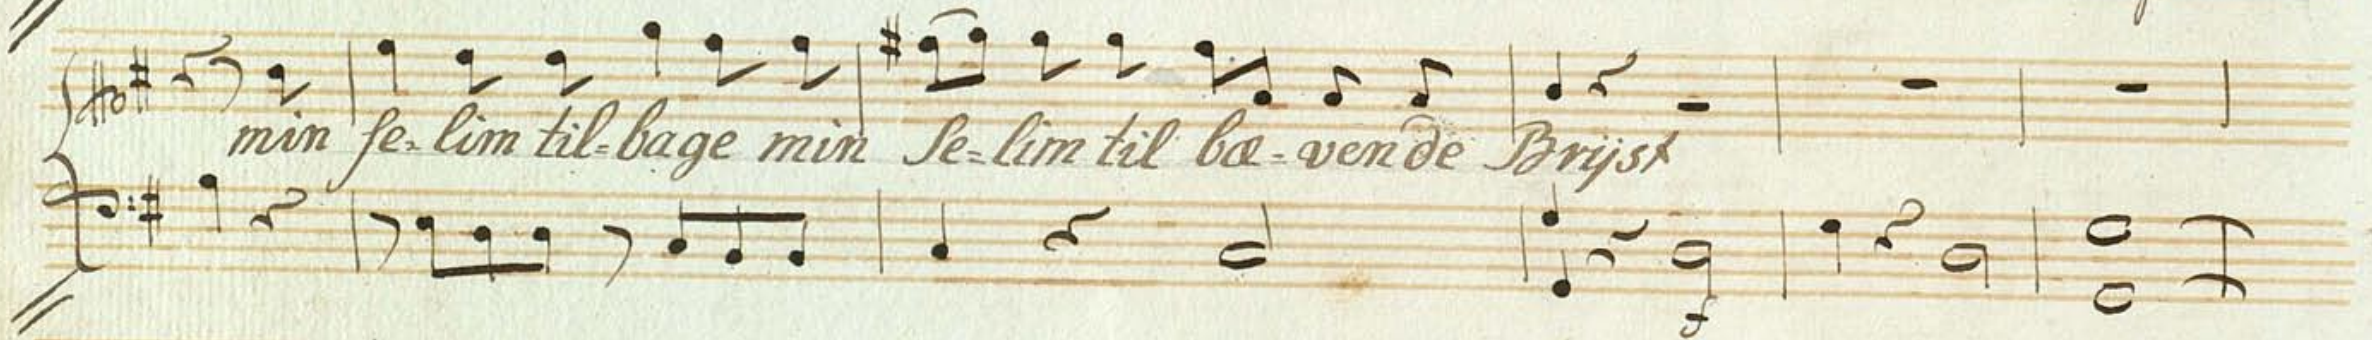 min se-lim til-bage min Se-lim til bæ-vende Brijst
f